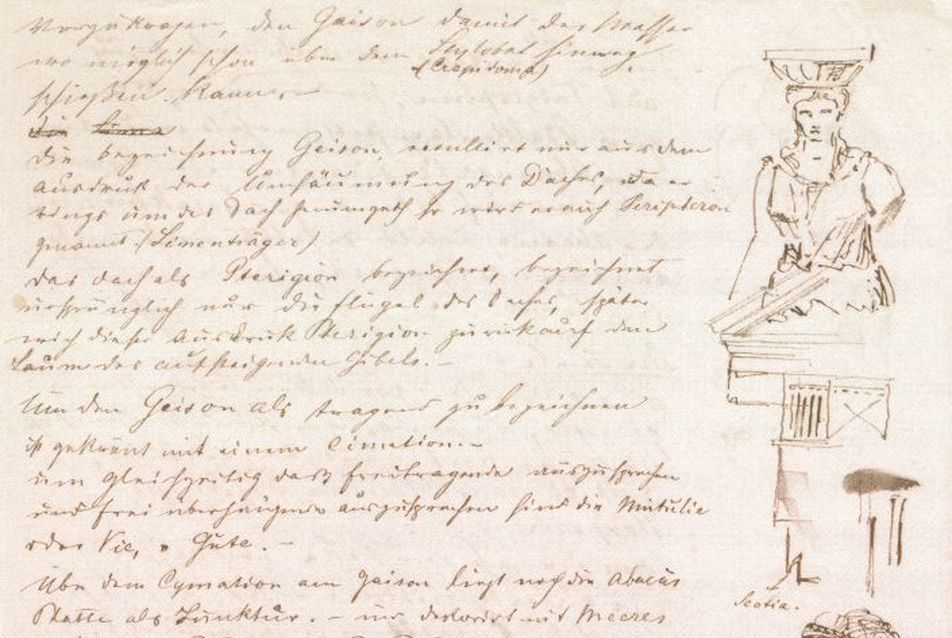 vorzukragen, den Geison damit das Wasser
wo möglich schon über dem Stylobat hinweg
(Crepidoma)
schießen kann.
die Sima
die bezeichnung Geison, resultiert nur aus dem
ausdruk der Umsäumung des Daches, da er
rings um das Dach herumgeth so wird er auch Peripteron
genannt (Simenträger)
das dach als Pterigion bezeichnet, bezeichnet
ursprünglich nur die flügel des Daches, später
wird dieser Ausdruk Pterigion zurück auf den
Saum des aufsteigenden Gibels. –
Um den Geison als tragend zu bezeichnen
ist gekrönt mit einem Cimation. –
um gleichzeitig daß freitragende auszusprechen
und frei überhängende auszusprechen sind die Mutulie
oder Vie, Gute. –
Über dem Cymation am Geison liegt noch die Abacus
Platte als Junktur. – nur dekorirt mit Meeres
Scotia.